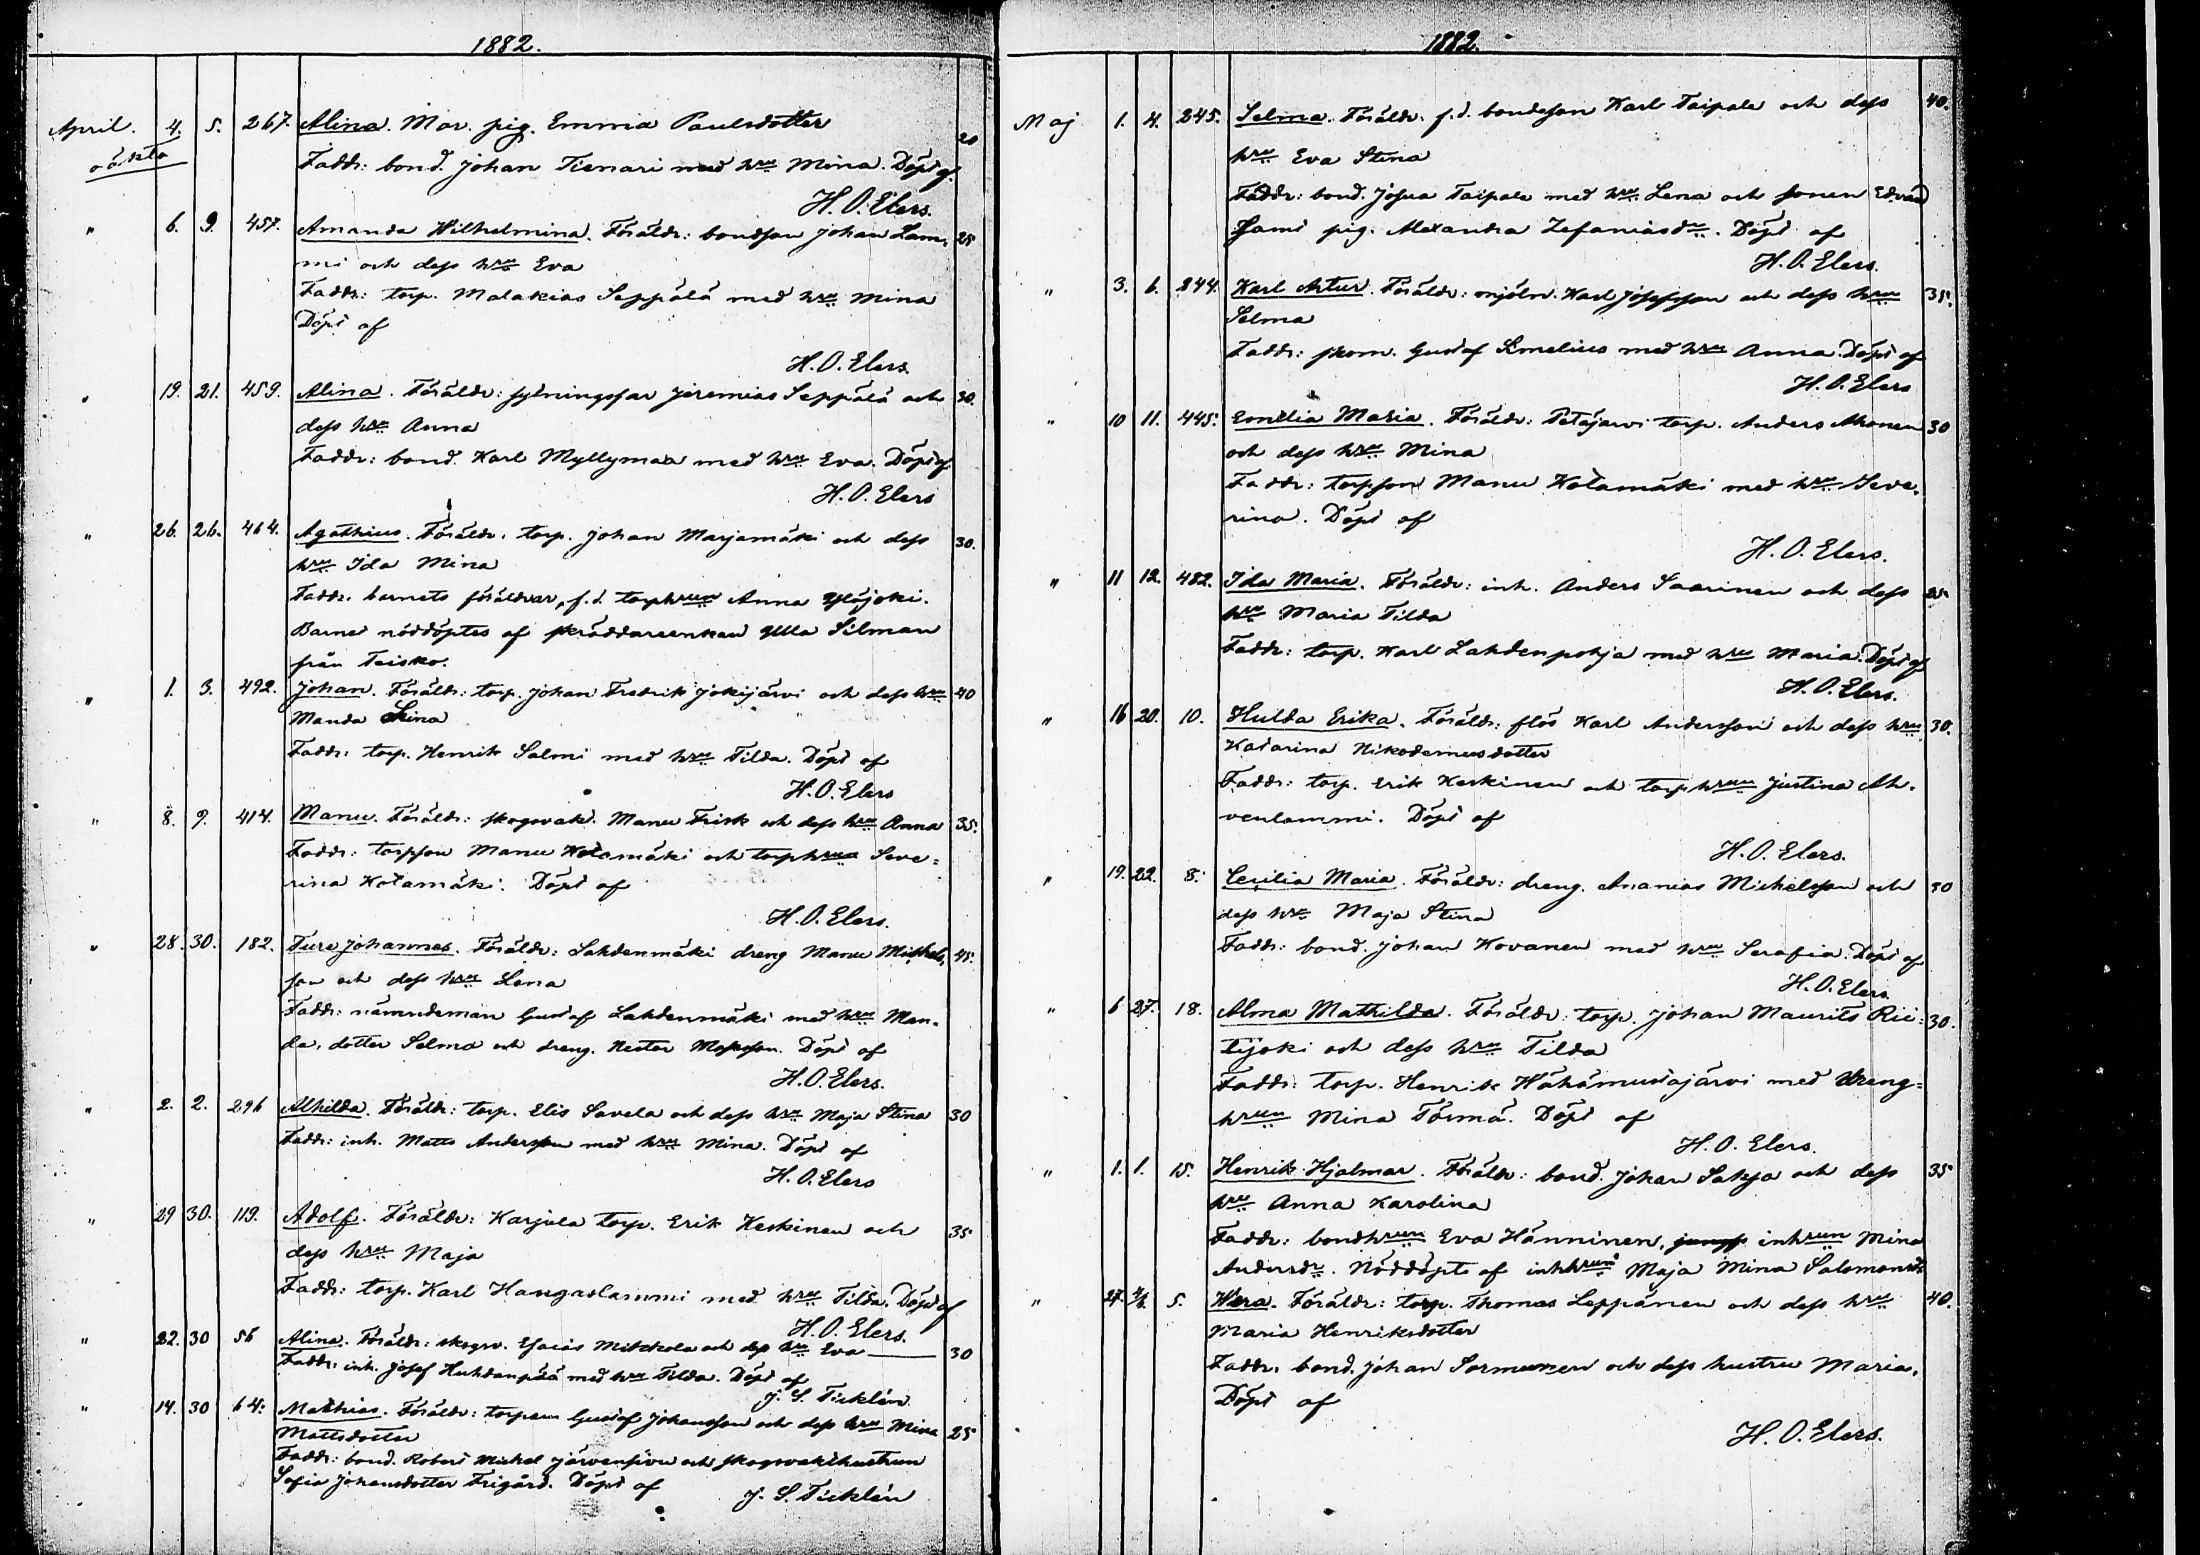 1882.
April. 4. 5. 267. Alina. Mor. pig. Emma Paulsdotter 20
oäkta Faddr: bond. Johan Tienari med hru Mina. Döpt af
H. O. Elers.
" 6. 9. 457. Amanda Wilhelmina. Föräldr: bondson Johan Lam- 25
mi och dess hru Eva
Faddr: torp. Malakias Seppälä med hru Mina
Döpt af
H. O. Elers.
" 19. 21. 459. Alina. Föräldr: sytningsfar Jeremias Seppälä och 30.
dess hru Anna
Faddr: bond. Karl Myllymaa med hru Eva. Döpt af
H. O. Elers
" 26. 26. 464. Agathius. Föräldr. torp. Johan Marjamäki och dess 30.
hru Ida Mina
Faddr. barnets föräldrar, f.d. torphrun Anna Ylöjoki.
Barnet nöddöptes af skräddareenkan Ulla Silman
från Teisko.
" 1. 3. 492. Johan. Föräldr: torp. Johan Fredrik Jokijärvi och dess hru 40
Manda Stina
Faddr: torp. Henrik Salmi med hru Tilda. Döpt af
H. O. Elers
" 8. 9. 414. Manu. Föräldr: skogsvakt. Manu Frisk och dess hru Anna 35.
Faddr: torpson Manu Kotamäki och torphrun Seve=
rina Kotamäki. Döpt af
H. O. Elers.
" 28. 30. 182. Ture Johannes. Föräldr: Lahdenmäki dreng Manu Michels- 45.
son och dess hru Lena
Faddr: nämndeman Gustaf Lahdenmäki med hru Man-
da, dotter Selma och dreng. Nestor. Döpt af
H. O. Elers.
" 2. 2. 296 Alhilda. Föräldr: torp. Elis Savela och dess hru Maja Stina 30
Faddr: inh. Matts Andersson med hru Mina. Döpt af
H. O. Elers
" 29 30. 119. Adolf. Föräldr: Karjula torp. Erik Keskinen och 35
dess hru Maja
Faddr: torp. Karl Hangaslammi med hru Tilda. Döpt af
H. O. Elers.
" 22. 30 56 Alina. Föräldr: skogsv. Esaias Mikkola och dess hru Eva 30
Faddr: inh. Josef Huhdanpää med hru Tilda. Döpt af
J. S. Ticklén
" 14. 30 64. Mathias. Föräldr: torparen Gustaf Johansson och dess hru Mina 25
Mattsdotter
Faddr: bond. Robert Michel Järvensivu och skogsvaktshustrun
Sofia Johansdotter Frigård. Döpt af J. S. Ticklén
1882.
Maj 1. 4. 245. Selma. Föräldr. f.d. bondeson Karl Taipale och dess 40.
hru Eva Stina
Faddr: bond. Josua Taipale med hru Lena och sonen Edvard
samt pig. Alexandra Zefaniasdr. Döpt af
H. O. Elers.
" 3. 6. 244. Karl Artur. Föräldr: mjöln. Karl Josefsson och dess hru 35.
Selma
Faddr: skom. Gustaf Kornelius med hru Anna. Döpt af
H. O. Elers
" 10 11. 445. Emelia Maria. Föräldr: Petäjärvi torp. Anders Ahonen 30
och dess hru Mina
Faddr: torpson Manu Kotamäki med hru Seve-
rina. Döpt af
H. O. Elers.
" 11 12. 482. Ida Maria. Föräldr: inh. Anders Saarinen och dess 25
hru Maria Tilda
Faddr: torp. Karl Lahdenpohja med hru Maria. Döpt af
H. O. Elers.
" 16 20. 10. Hulda Erika. Föräldr: flös Karl Andersson och dess hru 30.
Katarina Nikodemusdotter
Faddr: torp. Erik Keskinen och torphrun Justina Ah-
venlammi. Döpt af
H. O. Elers.
" 19. 22. 8. Cecilia Maria. Föräldr: dreng. Ananias Michelsson och 30
dess hru Maja Stina
Faddr: bond. Johan Kovanen med hru Serafia. Döpt af
H. O. Elers
" 6 27. 18. Alma Mathilda. Föräldr: torp. Johan Maurits Rii- 30.
tijoki och dess hru Tilda
Faddr: torp. Henrik Wähämustajärvi med dreng=
hrun Mina Törmä. Döpt af
H. O. Elers.
" 1. 1. 15. Henrik Hjalmar. Föräldr: bond. Johan Sakja och dess 35
hru Anna Karolina
Faddr: bondhrun Eva Hänninen, inhrun Mina
Andersdr. Nöddöpts af inhhrun Maja Mina Salomonsdr
" 27. 4/6 5. Wera. Föräldr: torp. Thomas Leppänen och dess hru 40.
Maria Henriksdotter
Faddr: bond. Johan Sormunen och dess hustru Maria.
Döpt af
H. O. Elers.